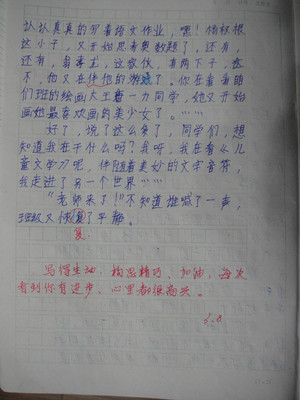 认认真真的写着语文作业,嘿!杨棪棋
这小子,又开始思考奥数题了,还有,
还有,翁菁艺,这家伙,有两下子,这
不,他又在伴他的游戏了。你在看看咱
们班的绘画大王一力同学,她又开始
画她最喜欢画的美少女了。……
好了,说了这么多了,同学们,想
知道我在干什么吗?我呀,我在看么儿
童文学刀呢,伴随着美妙的文字音符,
我走进了另一个世界……
"老师来了!"不知道谁喊了一声,
班级又恢复了平静。
复
写得生动,构思精巧。加油,每次
看到你有进步,心里都很高兴。
5.8